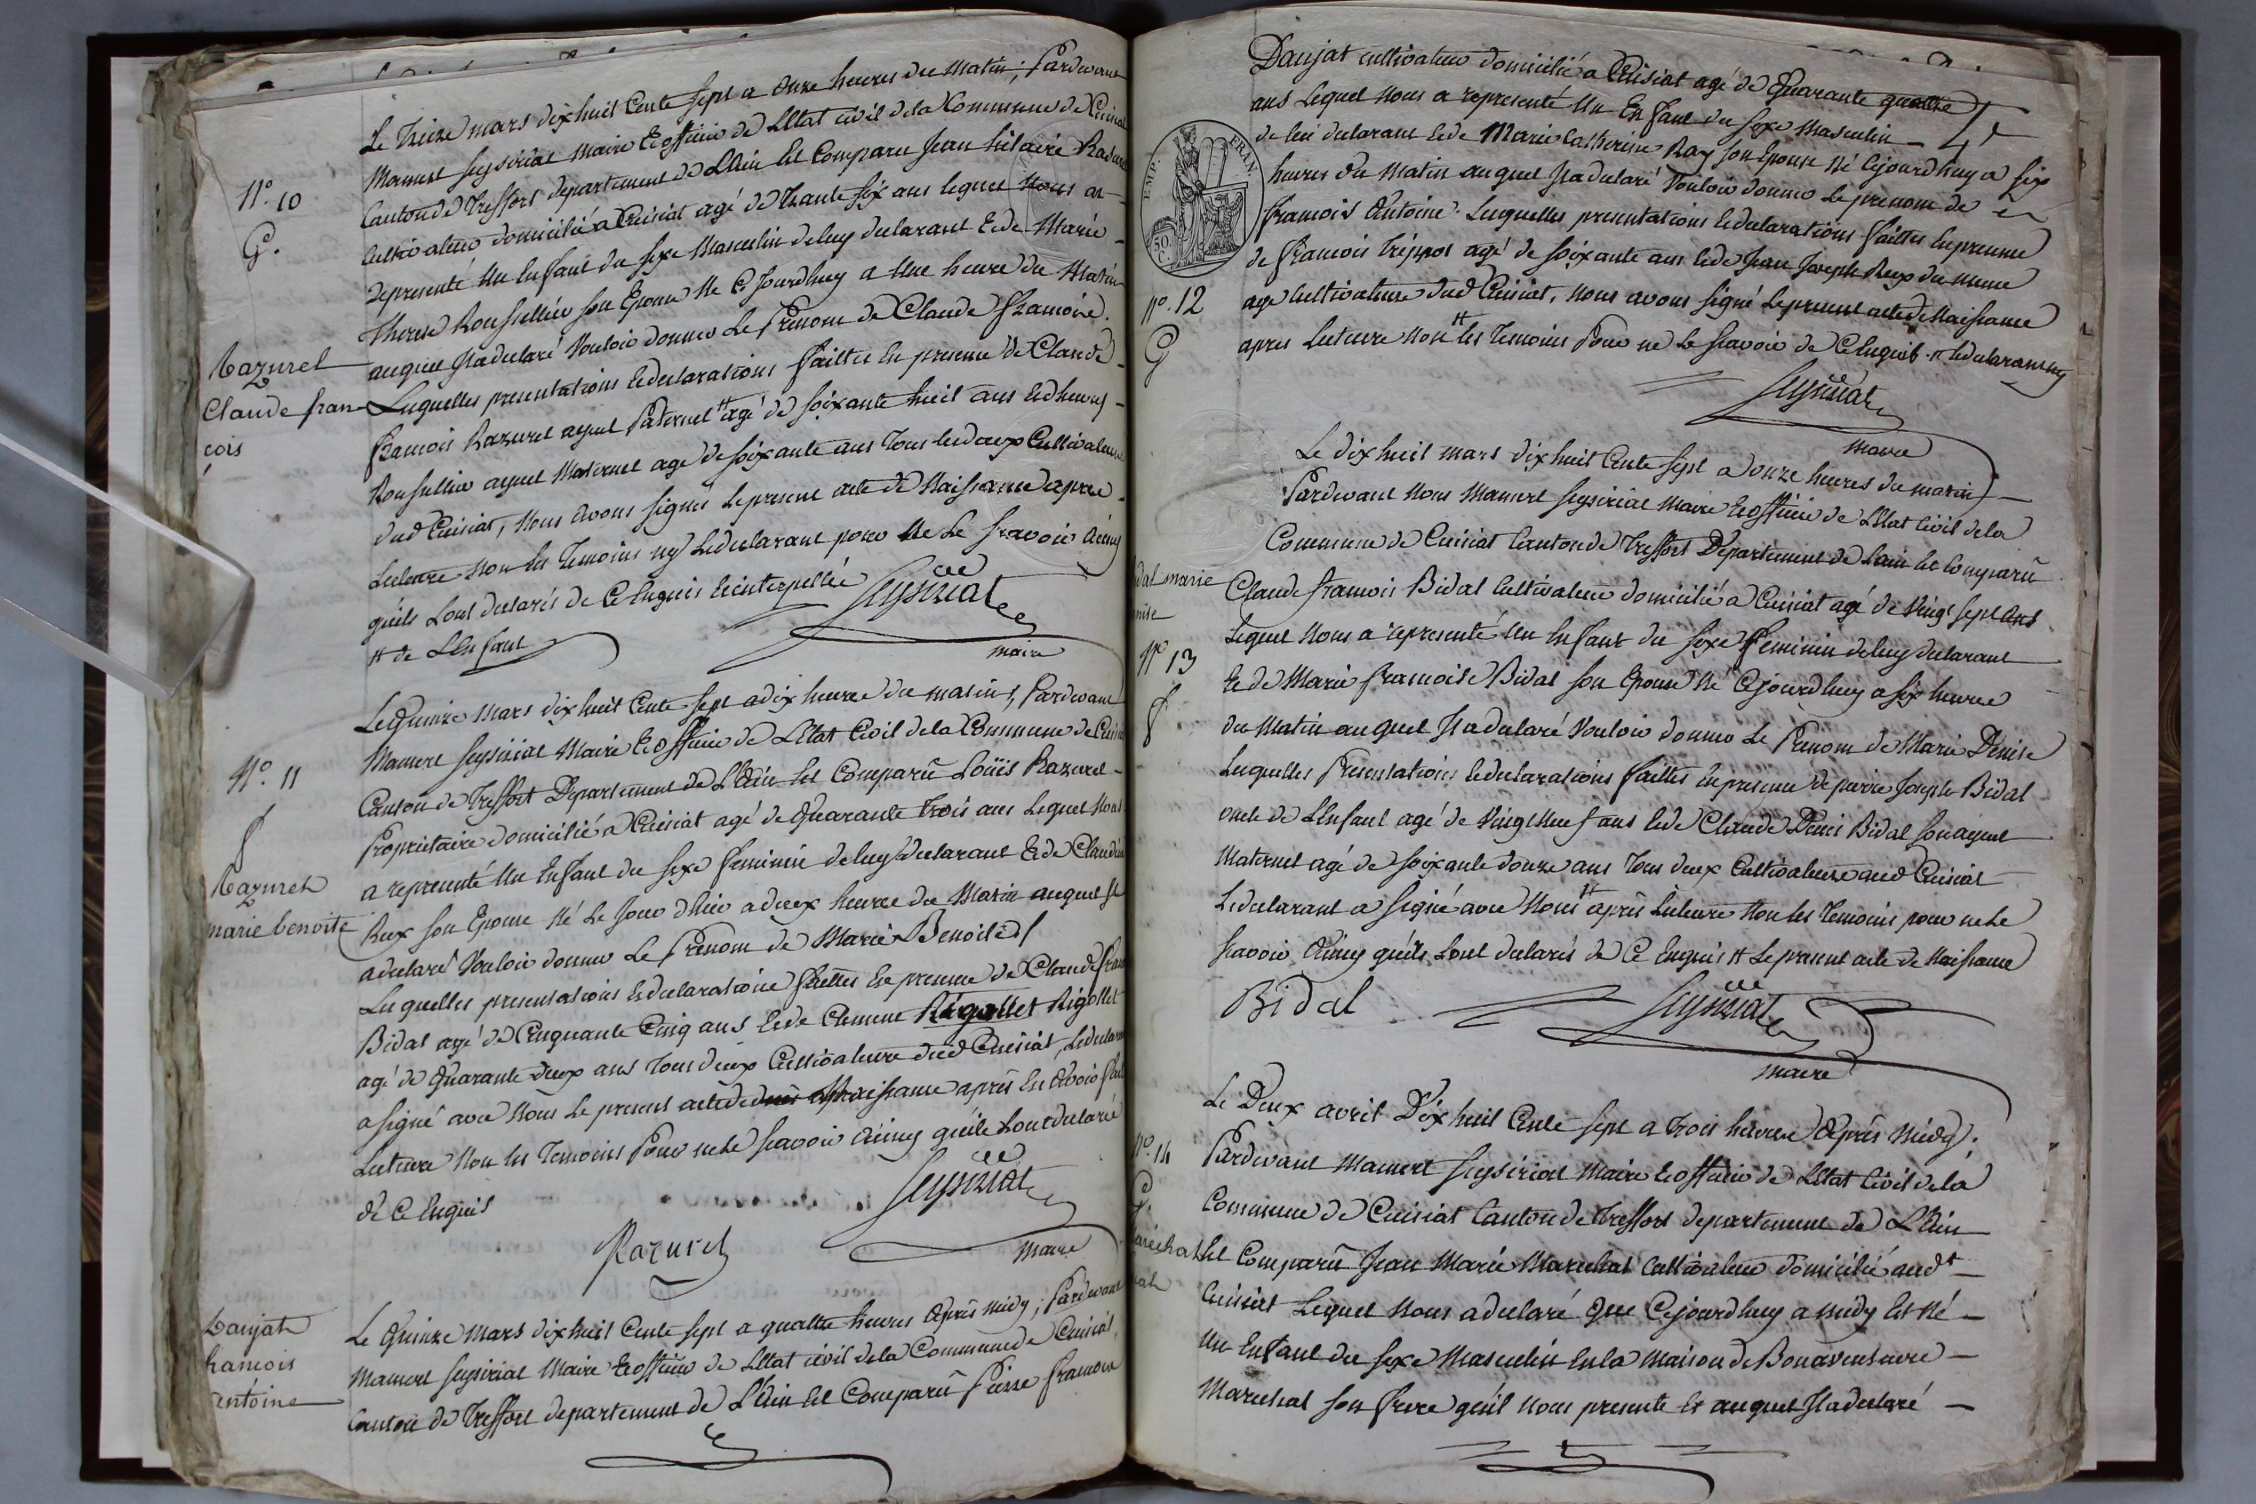 Le Treize mars dixhuit Cents Sept a Onze heures du Matin ; Pardevant
Mamert Seysiriat Maire Et officier de L'Etat civil de la Commune de Cuisiat
Canton de Treffort departement de L'Ain Est Comparu Jean hilaire Razurel
Cultivateur domicilié a Cuisiat agé de Trante Six ans lequel Nous a
Nº. 10
G.
représenté Un Enfant du Sexe Masculin de luy declarant Et de Marie
Therese Rousselliée son Epouse Né Ce Jourdhuy a Une heure du Matin
auquel Il a declaré Vouloir donner Le Prenom de Claude François.
Razurel
Claude fran
çois
Lesquelles presentations Et declarations faittes En presence de Claude
François Razurel ayeul Paternel # agé de soixante huit ans Et de
ayeul Maternel agé de soixante ans Tous les deux Cultivateurs
dud Cuisiat, Nous avons signés Le present acte de Naissance apres
Lecture Non les Temoins ny Le declarant pour Ne Le Sçavoir Ainsy
quils Sont declarés de Ce Enquis Et interpellés
# de L'Enfant
Seysiriat
maire
Le Quinze Mars dixhuit Cents Sept a dix heures du matin, Pardevant
Mamert Seysiriat Maire Et officier de L'Etat Civil de la Commune de Cuisiat
Canton de Treffort Departement de L'Ain Est Comparû Loüis Razurel
Nº. 11
f
Propriétaire domicilié a Cuisiat agé de Quarante Trois ans Lequel Nous
a representé Un Enfant du sexe feminin de luy declarant Et de Claudine
Razurel
marie benoite
Rux son Epouse Né Le Jour d'hier a deux heures du Matin auquel Il
a declaré Vouloir donner Le Prenom de Marie Benoite
Lesquelles presentations Et declarations faittes En presence de Claude fran
Bidal agé de Cinquante Cinq ans Et de Clement Rigollet Rigollet
agé de Quarante deux ans Tous deux Cultivateurs dud Cuisiat, Le declarant
a signé avec Nous Le present acte de Naissance après En avoir fait
Lecture Non les Temoins Pour ne le Sçavoir Ainsy qu'ils Sont declaré
de Ce Enquis
Seysiriat
Razurel
maire
Danjat
francois
antoine
Le Quinze Mars dixhuit Cents Sept a quattre heures Après midy ; Pardevant
Mamert Seysiriat Maire Et officier de L'Etat civil de la Commune de Cuisiat
Canton de Treffort departement de L'Ain Est Comparû Pierre François
Danjat cultivateur domicilié a Cuisiat agé de Quarante quattre
ans Lequel Nous a representé Un Enfant du Sexe Masculin
EMP. FRAN.
50. C.
de lui declarant Et de Marie Catherine Ray son Epouse Né Cejourdhuy a six
heures du Matin auquel Il a declaré Vouloir donner Le prenom de
François Antoine. Lesquelles presentations Et declarations faittes En presence
de François Treppoz agé de soixante ans Et de Jean Joseph Rux du meme
Nº. 12
G
age Cultivateurs dud Cuisiat, Nous avons signé Le present acte de Naissance
apres Lecture Non # les Temoins Pour ne Le Sçavoir de Ce Enquis # le declarant ny
Seysiriat
maire
Le dix huit mars dixhuit Cents Sept a onze heures du matin
Pardevant Nous Mamert Seysiriat Maire Et officier de L'Etat Civil de la
Commune de Cuisiat Canton de Treffort Departement de Lain Est Comparû
dal marie
nise
Nº 13
f
Claude François Bidal Cultivateur domicilié a Cuisiat agé de Vingt Sept ans
Lequel Nous a representé Un Enfant du Sexe feminin de luy declarant
Et de Marie Francoise Bidal son Epouse Né Cejourdhuy a six heures
du Matin auquel Il a declaré Vouloir donner Le Prenom de Marie Denise
Lesquelles Presentations Et declarations faittes En presence de pierre Joseph Bidal
oncle de L'Enfant agé de Vingt neuf ans Et de Claude Denis Bidal son ayeul
Maternel agé de soixante douze ans Tous deux Cultivateurs aud Cuisiat
Le declarant a signé avec Nous # après Lecture Non les Temoins pour ne le
Sçavoir Ainsy qu'ils Sont declarés de Ce Enquis # Le present acte de Naissance
Bidal
Seysiriat
maire
Le Deux avril Dix huit Cents Sept a Trois heures Après Midy.
Nº. 14
G.
Pardevant Mamert Seysiriat Maire Et officier de L'Etat Civil de la
Commune de Cuisiat Canton de Treffort departement de L'Ain
aréchal
Est Comparû Jean Marie Marechal Cultivateur domicilié audt
Cuisiat Lequel Nous a declaré Que Cejourdhuy a midy Est Né
Un Enfant du Sexe Masculin En la Maison de Bonaventure
Marechal son frere qu'il Nous presente Et auquel Il a declaré